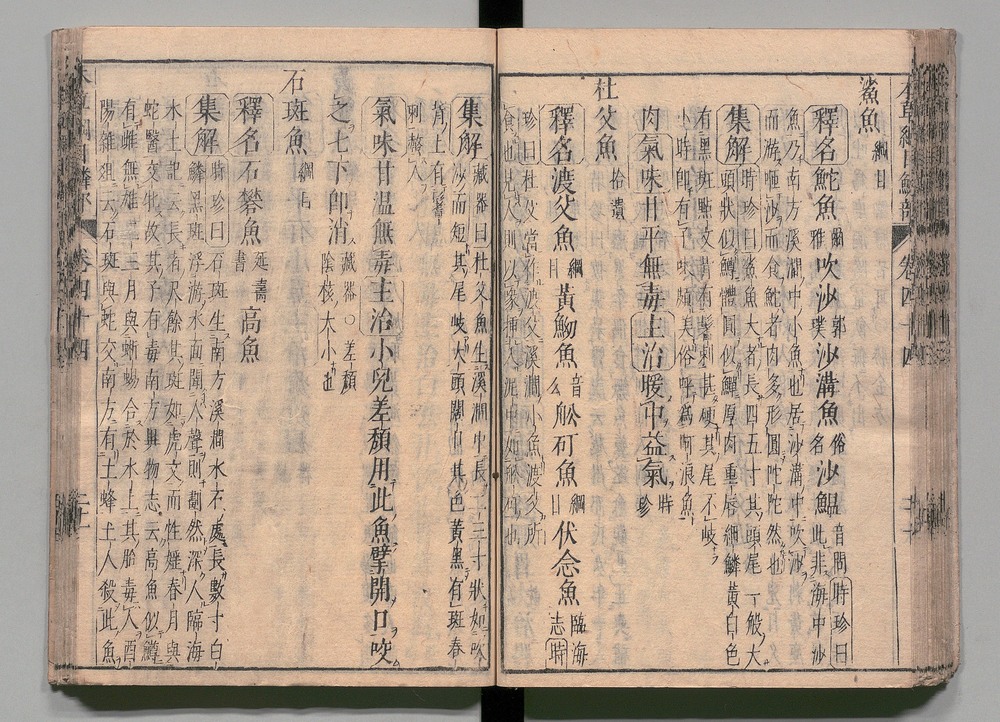 鯊魚 綱目
釋名鮀魚 爾雅 吹沙 郭璞 沙溝魚 俗名 沙鰛 音問 時珍曰 此非海中沙
魚乃南方溪澗中小魚也居沙溝中吹沙
而游咂沙而食鮀者肉多形圓陀陀然也
集解 時珍曰鯊魚大者長四五寸其頭尾一般大
頭狀似鱒體圓似鱓厚肉重唇細鱗黃白色
有黑斑點文背有鬐刺甚硬其尾不岐
小時即有子味頗美俗呼爲阿浪魚
肉氣味甘平無毒主治暖中益氣 時珍
杜父魚 拾遺
釋名渡父魚 綱目 黃䱂魚 音么 舩矴魚 綱目 伏念魚 臨海志 時
珍曰杜父當作渡父溪澗小魚渡父所
食也見人則以喙插入泥中如舩矴也
集解 藏器曰杜父魚生溪澗中長二三寸狀如吹
沙而短其尾岐大頭闊口其色黃黑有斑脊
背上有鬐
刺螫人
氣味甘温無毒主治小兒差頹用此魚擘開口咬
之七下即消 藏器○差頹陰核大小也
石斑魚 綱目
釋名石礬魚 延壽書 高魚
集解 時珍曰石斑生南方溪澗水石處長數寸白
鱗黑斑浮游水面聞人聲則劃然深入臨海
水土記云長者尺餘其斑如虎文而性媱春月與
蛇醫交牝故其子有毒南方異物志云高魚似鱒
有雌無雄二三月與蜥蜴合於水上其胎毒人酉
陽雜俎云石斑與蛇交南方有土蜂土人殺此魚